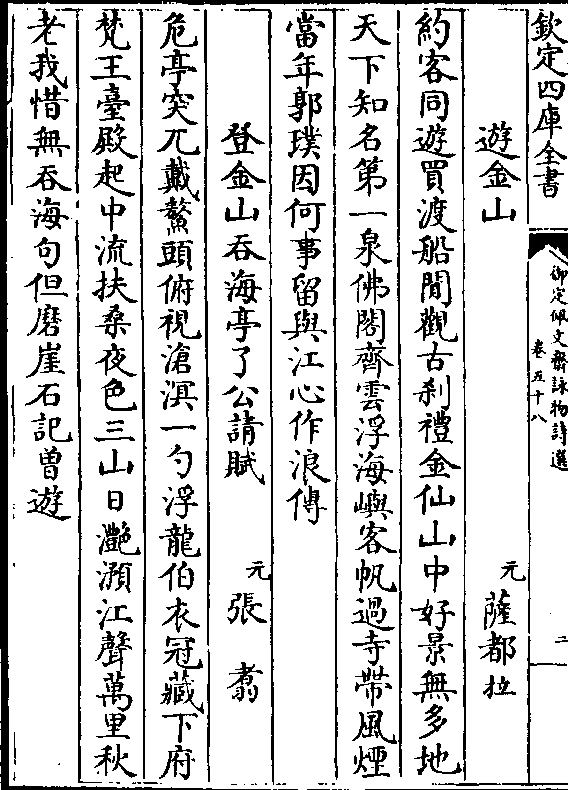 欽定四庫全書
御定佩文齋詠物詩選
卷五十八
二
遊金山
元薩都拉
約客同遊買渡船閒觀古刹禮金仙山中好景無多地
天下知名第一泉佛閣齊雲浮海嶼客帆過寺帶風煙
當年郭璞因何事留與江心作浪傳
登金山吞海亭了公請賦
元張翥
危亭突兀戴鰲頭俯視滄溟一勺浮龍伯衣冠藏下府
梵王臺殿起中流扶桑夜色三山日灔澦江聲萬里秋
老我惜無吞海句但磨崖石記曾遊